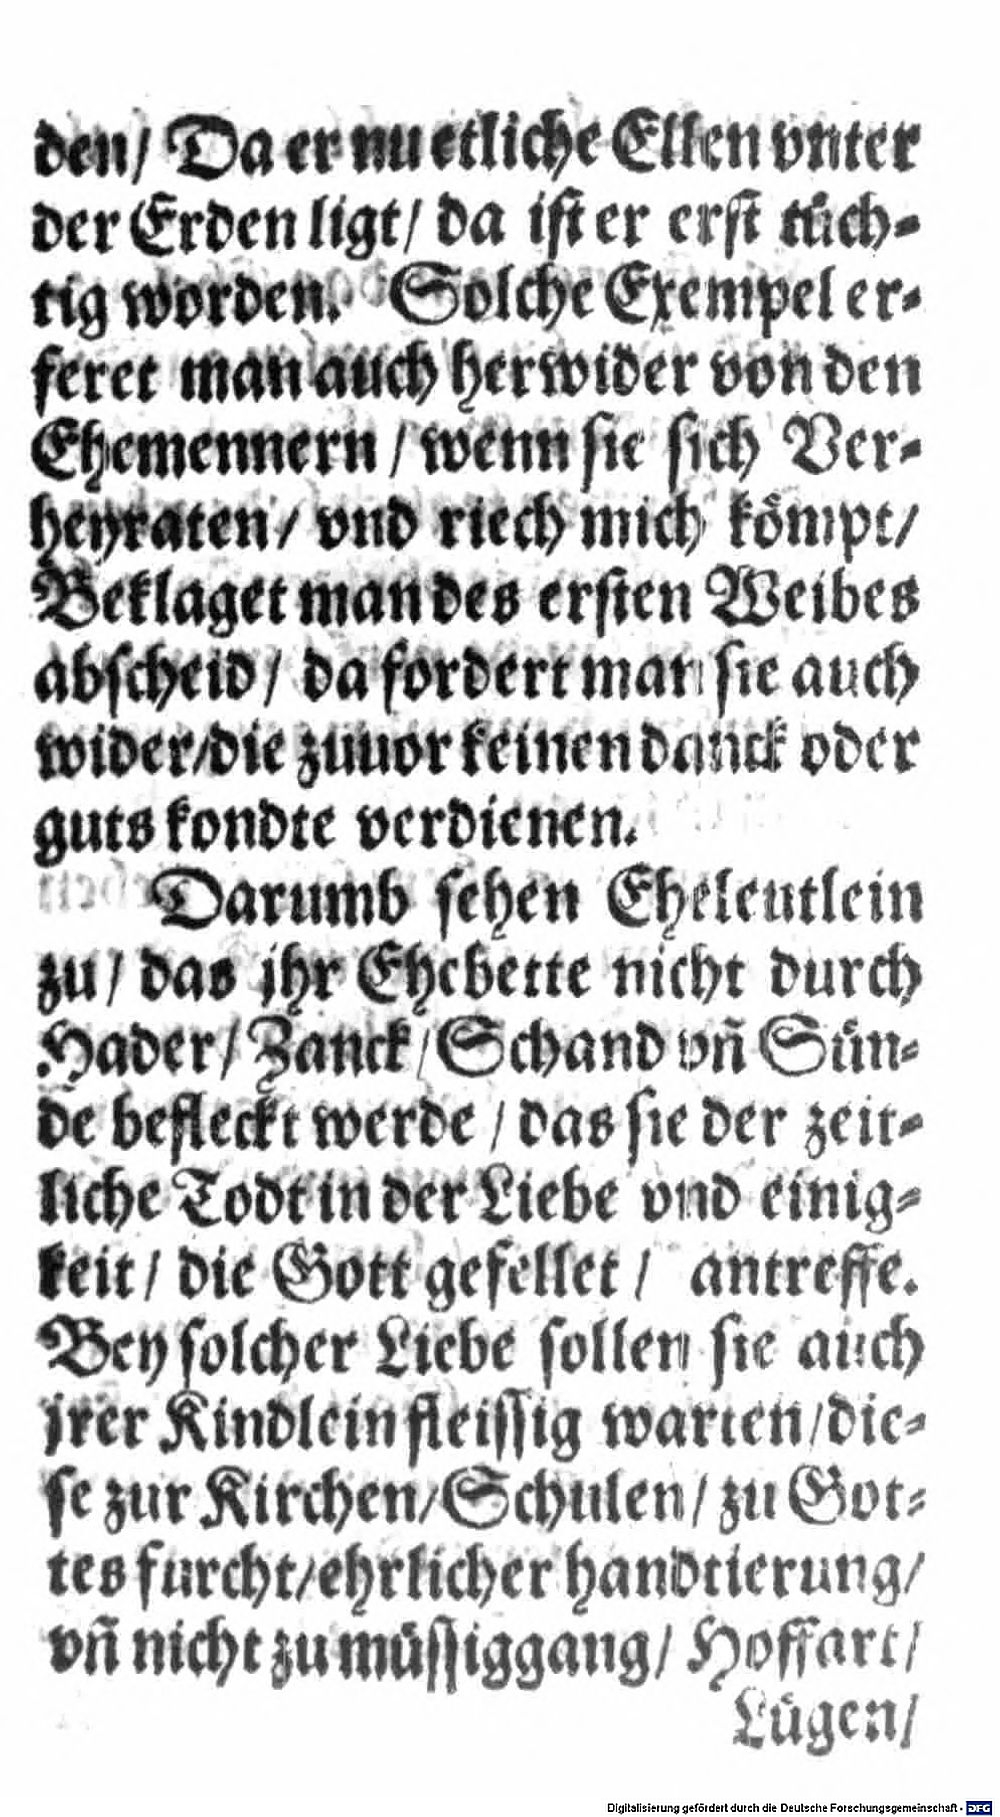 den/ Da er nu etliche Ellen vnter
der Erden ligt/ da iſt er erſt tüch⸗
tig worden. Solche Exempel er⸗
feret man auch herwider von den
Ehemennern / wenn ſie ſich Ver⸗
heyraten/ vnd riech mich kömpt/
Beklaget man des erſten Weibes
abſcheid/ da fordert man ſie auch
wider/die zuuor keinen danck oder
guts kondte verdienen.
Darumb ſehen Eheleutlein
zu/ das jhr Ehebette nicht durch
Hader/ Zanck/ Schand vñ Sün⸗
de befleckt werde / das ſie der zeit⸗
liche Todt in der Liebe vnd einig⸗
keit/ die Gott gefellet / antreffe.
Bey ſolcher Liebe ſollen ſie auch
jrer Kindlein fleiſſig warten/die⸗
ſe zur Kirchen/Schulen/ zu Got⸗
tes furcht/ehrlicher handtierung/
vñ nicht zu müſſiggang/ Hoffart/
Lügen/
Digitalisierung gefördert durch die Deutsche Forschungsgemeinschaft - DFG